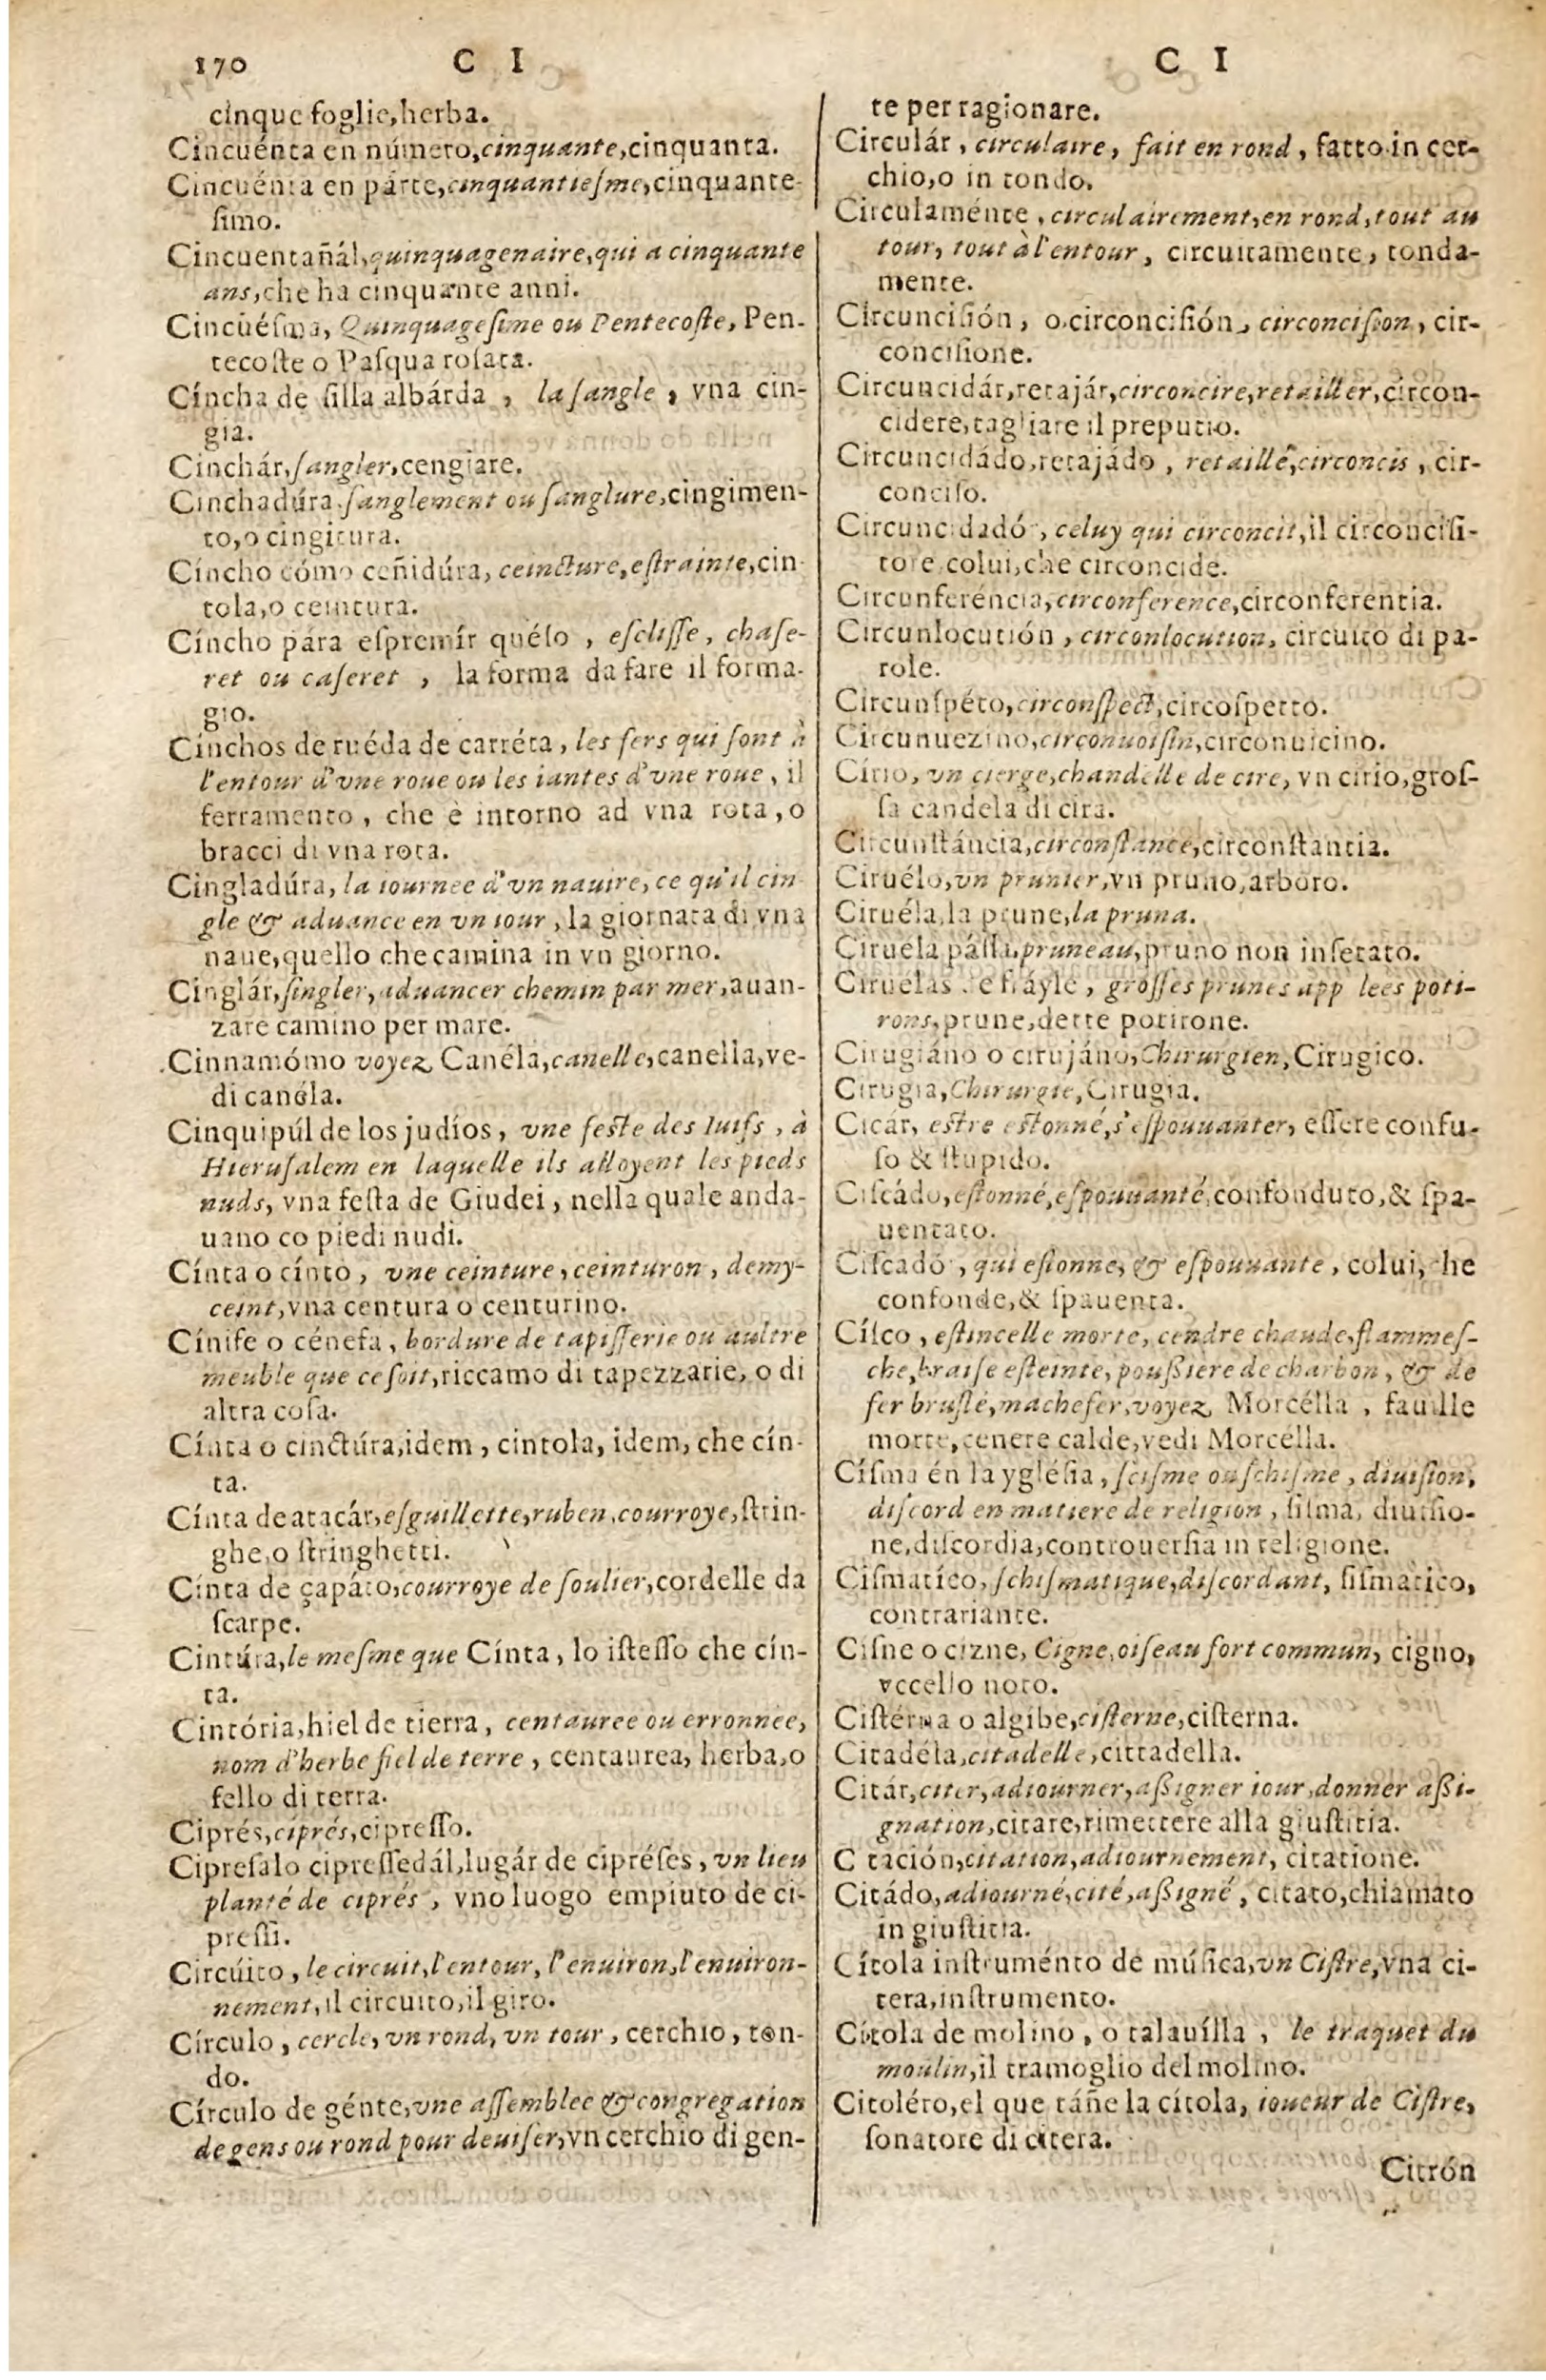 170 C I
cinque foglie,herba.
Cincuénta en número,cinquante,cinquanta.
Cincuénta en párte,cinquantieſme,cinquante-
ſimo.
Cincuentañál,quinquagenaire,qui a cinquante
ans,che ha cinquante anni.
Cincuéſma, Quinquageſime ou Pentecoſte, Pen-
tecoſte o Paſqua roſata.
Cíncha de ſilla albárda , la ſangle , vna cin-
gia.
Cinchár,ſangler,cengiare.
Cinchadúra,ſanglement ou ſanglure,cingimen-
to,o cingitura.
Cíncho cómo ceñidúra, ceincture,eſtrainte,cin-
tola,o ceintura.
Cíncho pára eſpremír quéſo , eſcliſſe, chaſe-
ret ou caſeret , la forma da fare il forma-
gio.
Cínchos de ruéda de carréta, les fers qui ſont à
l'entour d'vne roue ou les iantes d'vne roue, il
ferramento , che è intorno ad vna rota , o
bracci di vna rota.
Cingladúra, la iournee d'vn nauire, ce qu'il cin-
gle & aduance en vn iour , la giornata di vna
naue,quello che camina in vn giorno.
Cinglár,ſingler,aduancer chemin par mer,auan-
zare camino per mare.
Cinnamómo voyez Canéla,canelle,canella,ve-
di canéla.
Cinquipúl de los judíos , vne feſte des Iuifs , à
Hieruſalem en laquelle ils alloyent les pieds
nuds, vna feſta de Giudei , nella quale anda-
uano co piedi nudi.
Cínta o cínto , vne ceinture, ceinturon , demy-
ceint,vna centura o centurino.
Cínife o cénefa , bordure de tapiſſerie ou aultre
meuble que ce ſoit,riccamo di tapezzarie, o di
altra coſa.
Cínta o cinctúra,idem , cintola, idem, che cín-
ta.
Cínta de atacár,eſguillette,ruben,courroye,ſtrin-
ghe,o ſtringhetti.
Cínta de çapáto,courroye de ſoulier,cordelle da
ſcarpe.
Cintúra,le meſme que Cínta, lo iſteſſo che cín-
ta.
Cintória,hiel de tierra, centauree ou erronnee,
nom d'herbe fiel de terre , centaurea, herba,o
fello di terra.
Ciprés,ciprés,cipreſſo.
Cipreſalo cipreſſedál,lugár de cipréſes , vn lieu
planté de ciprés , vno luogo empiuto de ci-
preſſi.
Circúito , le circuit,l'entour, l'enuiron,l'enuiron-
nement,il circuito,il giro.
Círculo , cercle, vn rond, vn tour , cerchio, ton-
do.
Círculo de génte,vne aſſemblee & congregation
de gens ou rond pour deuiſer,vn cerchio di gen-
C I
te per ragionare.
Circulár , circulaire, fait en rond , fatto in cer-
chio,o in tondo.
Circulaménte , circulairement,en rond,tout au
tour, tout à l'entour , circuitamente, tonda-
mente.
Circunciſión, o circonciſión, circonciſion, cir-
conciſione.
Circuncidár,retajár,circoncire,retailler,circon-
cidere,tagliare il preputio.
Circuncidádo,retajádo , retaillé,circoncis , cir-
conciſo.
Circuncidadó , celuy qui circoncit,il circonciſi-
tore colui,che circoncide.
Circunferéncia,circonference,circonferentia.
Circunlocutión , circonlocution, circuito di pa-
role.
Circunſpéto,circonſpect,circoſpetto.
Circunuezino,circonuoiſin,circonuicino.
Círio, vn cierge,chandelle de cire, vn cirio,groſ-
ſa candela di cira.
Circunſtáncia,circonſtance,circonſtantia.
Ciruélo,vn prunier,vn pruno,arboro.
Ciruéla,la prune,la pruna.
Ciruéla páſſa,pruneau,pruno non inſetato.
Ciruélas de fráyle , groſſes prunes app lees poti-
rons,prune,dette potirone.
Cirugiáno o cirujáno,Chirurgien,Cirugico.
Cirugia,Chirurgie,Cirugia.
Cicár, eſtre eſtonné,s'eſpouuanter, eſſere confu-
ſo & ſtupido.
Ciſcádo,eſtonné,eſpouuanté,confonduto,& ſpa-
uentato.
Ciſcadó , qui eſtonne, & eſpouuante , colui, che
confonde,& ſpauenta.
Cíſco , eſtincelle morte, cendre chaude,flammeſ-
che,braiſe eſteinte, pouſſiere de charbon , & de
fer bruſlé,machefer,voyez Morcélla , fauille
morte,cenere calde,vedi Morcélla.
Císma én la ygléſia, ſciſme ou ſchiſme , diuiſion,
diſcord en matiere de religion , ſiſma, diuiſio-
ne,diſcordia,controuerſia in religione.
Ciſmatíco, ſchiſmatique,diſcordant, ſiſmàtico,
contrariante.
Ciſne o cizne, Cigne,oiſeau fort commun, cigno,
vccello noto.
Ciſtérna o algibe,ciſterne,ciſterna.
Citadéla,citadelle,cittadella.
Citár,citer,adiourner,aßigner iour,donner aßi-
gnation,citare,rimettere alla giuſtitia.
C tación,citation,adiournement, citatione.
Citádo,adiourné,cité,aßigné , citato,chiamato
in giuſtitia.
Cítola inſtruménto de múſica,vn Ciſtre,vna ci-
tera,inſtrumento.
Cítola de molino , o talauílla , le traquet du
moulin,il tramoglio del molino.
Citoléro,el que táñe la cítola, ioueur de Ciſtre,
ſonatore di citera.
Citrón